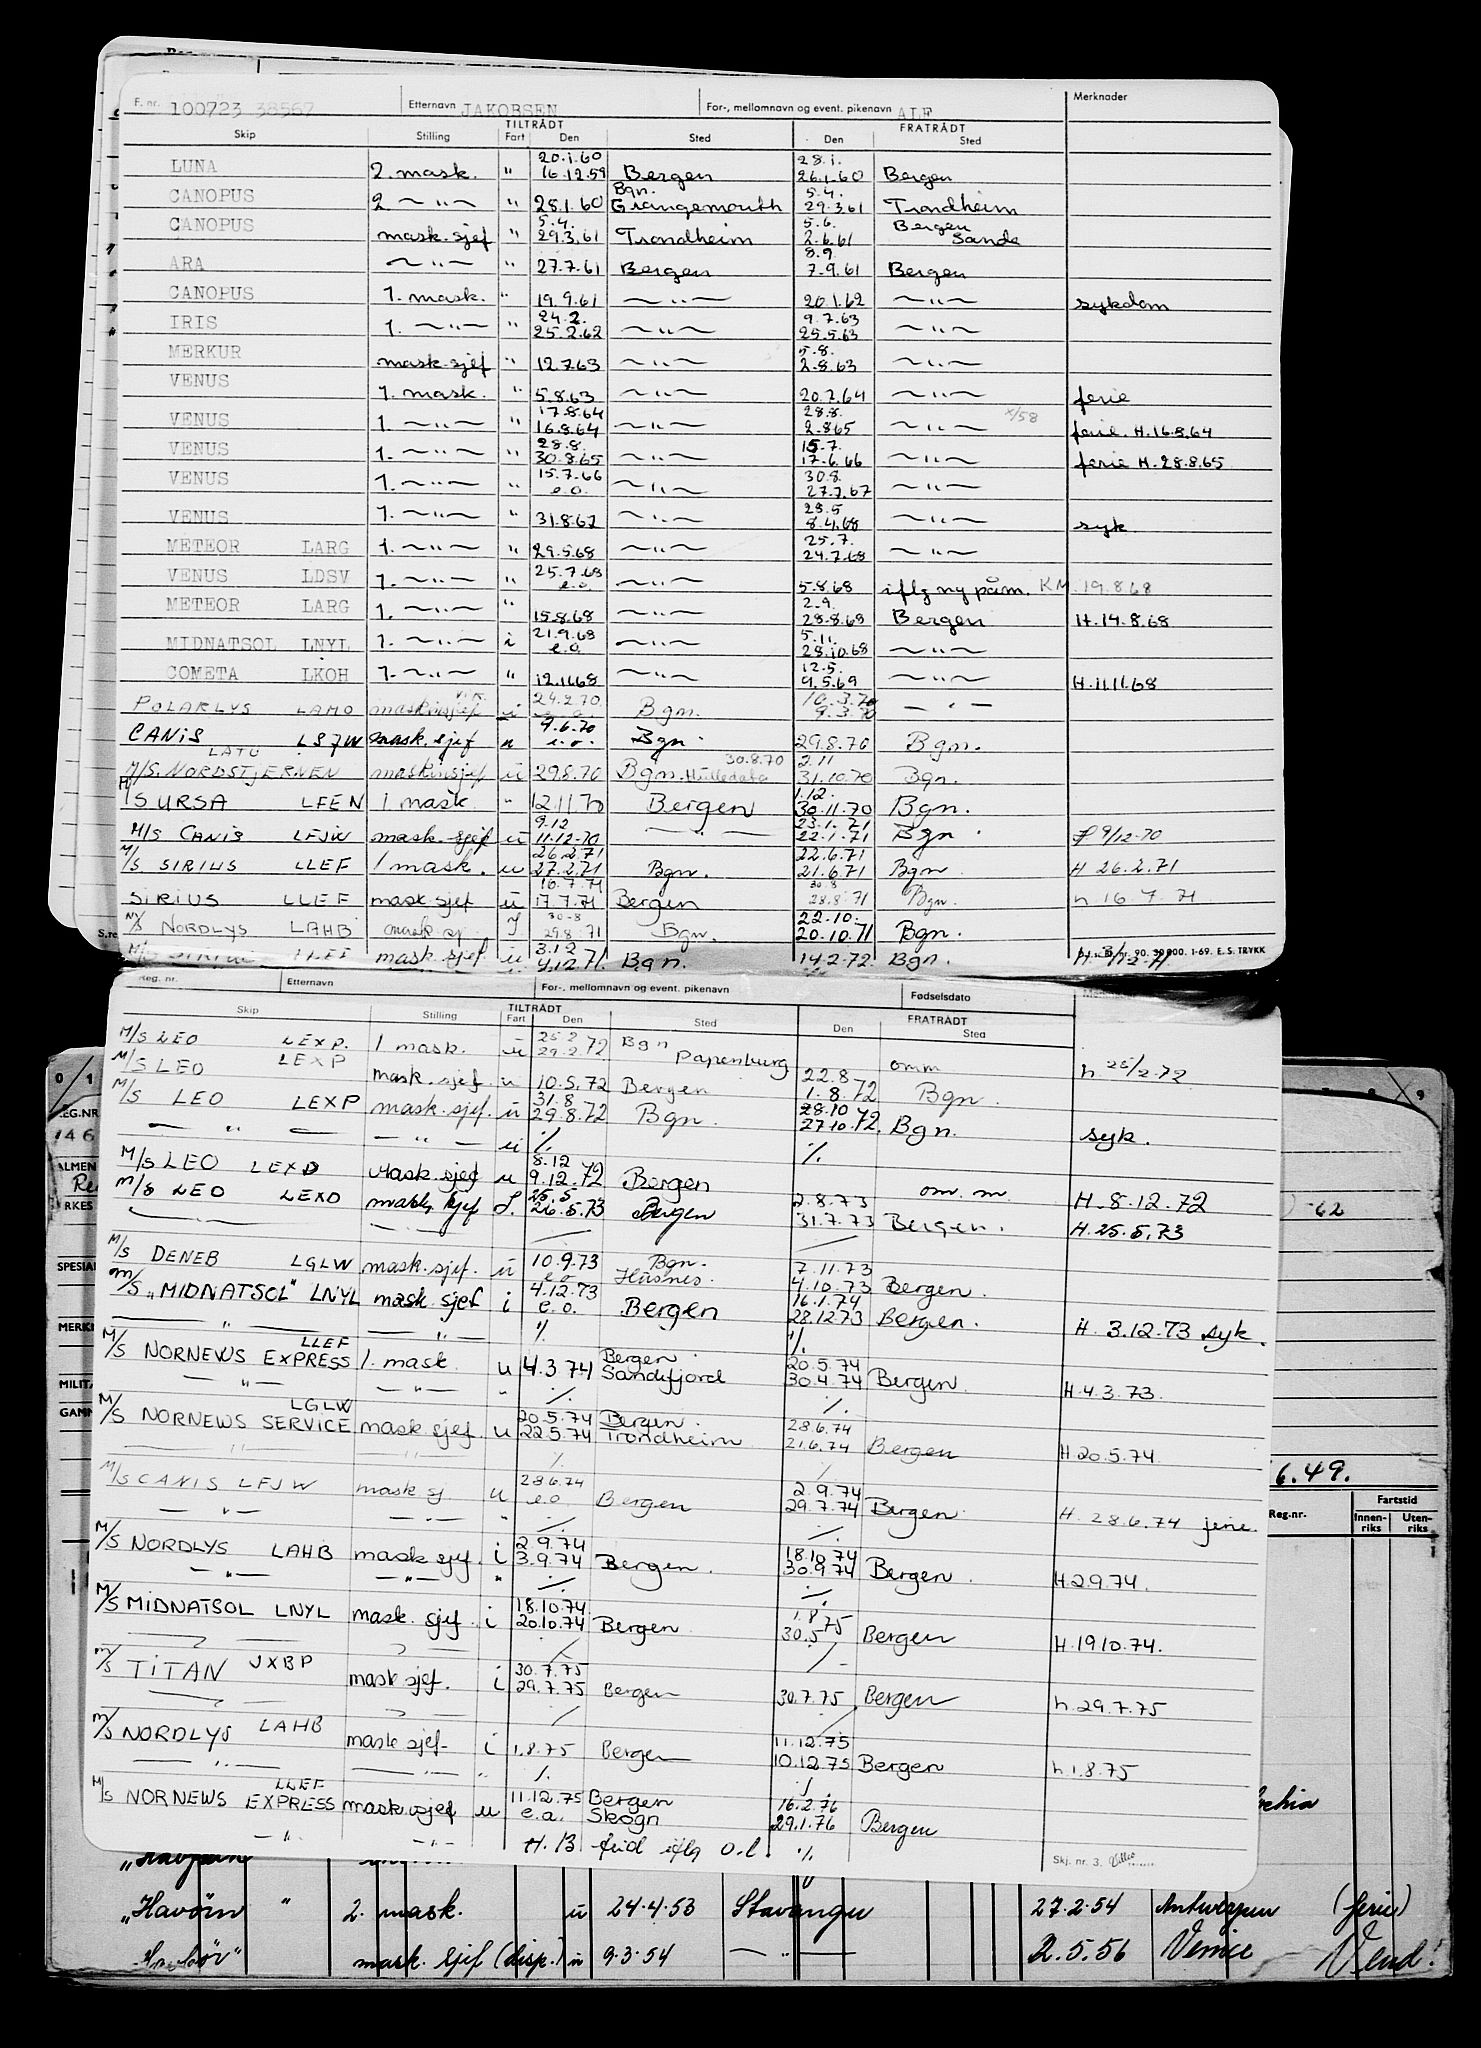 F. nr. 100723 38567 Etternavn JAKOBSEN For-, mellomnavn og event. pikenavn ALF Merknader
TILTRÅDT FRATRÅDT
Skip Stilling Fart Den Sted Den Sted
20.1.60 28.1.
LUNA 2. mask. " 16.12.59 Bergen 26.1.60 Bergen
Bgn. 5.4.
CANOPUS 2 — " — " 28.1.60 Grangemouth 29.3.61 Trondheim
5.4. 5.6. Bergen
CANOPUS mask.sjef " 29.3.61 Trondheim 2.6.61 Sande
8.9.
ARA — " — " 27.7.61 Bergen 7.9.61 Bergen
CANOPUS 1. mask. " 19.9.61 — " — 20.1.62 — " — sykdom
24.2. 9.7.63
IRIS 1. — " — " 25.2.62 — " — 25.5.63 — " —
5.8.
MERKUR mask.sjef " 12.7.63 — " — 2.8.63 — " —
VENUS 1. mask. " 5.8.63 — " — 20.7.64 — " — ferie
17.8.64 28.8. x/58
VENUS 1. — " — " 16.8.64 — " — 2.8.65 — " — ferie. H.16.8.64
28.8. 15.7.
VENUS 1. — " — " 30.8.65 — " — 17.6.66 — " — ferie H.28.8.65
15.7.66 30.8.
VENUS 1. — " — " e.o. — " — 27.7.67 — " —
29.5
VENUS 1. — " — " 31.8.67 — " — 8.4.68 — " — syk
25.7.
METEOR LARG 1. — " — " 29.5.68 — " — 24.7.68 — " —
25.7.68
VENUS LDSV 1. — " — " e.o. — " — 5.8.68 iflg ny påm. KM 19.8.68
2.9.
METEOR LARG 1. — " — " 15.8.68 — " — 28.8.68 Bergen H.14.8.68
21.9.68 5.11.
MIDNATSOL LNYL 1. — " — i e.o. — " — 28.10.68 — " —
12.5.
COMETA LKOH 1. — " — " 12.11.68 — " — 9.5.69 — " — H.11.11.68
24.2.70 10.3.70
POLARLYS LAMO maskinsjef i Bgn. 9.3.70 — " —
9.6.70
CANIS mask.sjef u e.o. Bgn. 29.8.70 Bgn.
LATU 30.8.70 2.11
M/S. NORDSTJERNEN maskinsjef 29.8.70 Bgn. 31.10.70 Bgn.
1.12.
M/S URSA LFEN 1 mask. " 12.11.70 Bergen 30.11.70 Bgn.
9.12 23.1.71
M/S CANIS LFJW mask.sjef u 11.12.70 — " — 22.1.71 Bgn. 9/12-70
26.2.71 22.6.71
M/S. SIRIUS LLEF 1 mask. u 27.2.71 Bgn. 21.6.71 Bgn. H 26.2.71
16.7.71 30.8
SIRIUS LLEF mask sjef u 17.7.71 Bergen 28.8.71 Bgn. h 16.7.71
30-8 22.10.
M/S NORDLYS LAHB mask sj. I 29.8.71 Bgn. 20.10.71 Bgn.
3.12
M/S SIRIUS LLEF mask sjef u 4.12.71 Bgn. 14.2.72 Bgn. H.
000. 1-69. E.S. TRYKK
Reg. nr. Etternavn For-, mellomnavn og event. pikenavn Fødselsdato
TILTRÅDT FRATRÅDT
Skip Stilling Fart Den Sted Den Sted
25.2
M/S LEO LEXP. 1 mask. u 29.2.72 Bgn Papenburg omm h 25/2.72
M/S LEO LEXP mask.sjef u 10.5.72 Bergen 22.8 1.8.72 Bgn.
31.8 28.10
M/S LEO LEXP mask.sjef. u 29.8.72 Bgn. 27.10.72. Bgn. syk.
— " — — " — u ./. ./.
8.12
M/S LEO LEXD mask.sjef u 9.12.72 Bergen om. m. H.8.12.72
25.5
M/S LEO LEXD mask. sjef 26.5.73 Bergen 2.8.73 31.7.73 Bergen. H.25.5.73
M/S DENEB LGLW mask.sjef. u 10.9.73 Bgn. 7.11.73
e.o. Husnes. 4.10.73 Bergen.
M/S „MIDNATSOL" LNYL mask sjef i 4.12.73 e.o. Bergen 16.1.74 28.12.73 Bergen. H. 3.12.73 syk.
— " — — " — ./. ./.
LLEF
M/S NORNEWS EXPRESS 1. mask. u 4.3.74 Bergen. Sandefjord 20.5.74 30.4.74 Bergen. H.4.3.73.
— " — — " — " ./. ./.
LGLW
M/S NORNEWS SERVICE mask sjef. u 20.5.74 22.5.74 Bergen. Trondheim 28.6.74 21.6.74 Bergen H.20.5.74.
M/S CANIS LFJW mask sj u 28.6.74 e.o Bergen 2.9.74 29.7.74 Bergen H. 28.6.74 ferie.
— " — — " — " ./. ./.
M/S NORDLYS LAHB mask sjef. i 2.9.74 3.9.74 Bergen. 18.10.74 30.9.74 Bergen. H.2.9.74.
— " — — " — " ./. ./.
M/S MIDNATSOL LNYL mask. sjef. i 18.10.74. 20.10.74 Bergen 1.8.75 30.5 Bergen H.19.10.74.
M/S TITAN JXBP mask sjef. i 30.7.75 29.7.75 Bergen 30.7.75. Bergen h.29.7.75
M/S NORDLYS LAHB mask sjef- i 1.8.75 Bergen 11.12.75 10.12.75 Bergen h.1.8.75
LLEF
M/S NORNEWS EXPRESS mask.sjef u 11.12.75 e.a. Bergen Skogn 16.2.76 29.1.76 Bergen
— " — — " — H. 13 iflg O.l. ./.
Skj. nr. 3.
0 1
REG.NR
146
ALMEN
RKES
SPESIA
MERK
MILIT
GAMM
9
-62
6.49.
Reg.nr. Fartstid
Innen-riks Uten-riks
„Havörn " 2. mask. u 24.4.53 Stavanger 27.2.54 Antwerpen (ferie)
mask. sjef (disp.) u 9.3.54 — " — 2.5.56 Venice Vend!